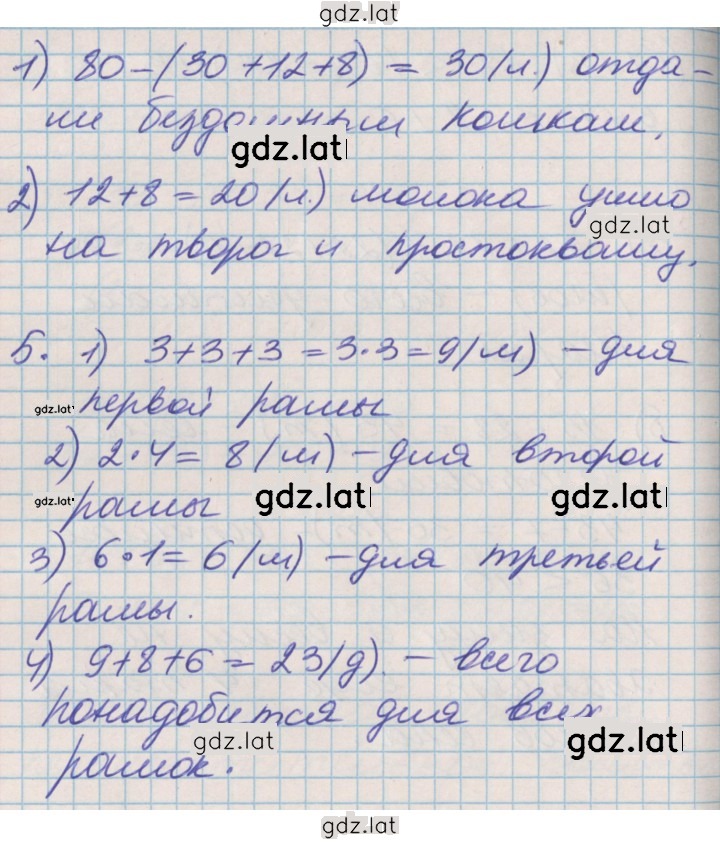 gdz.lat
1) 80 – (30 + 12 + 8) = 30 (л.) отда-
ли бездомным кошкам.
gdz.lat
2) 12 + 8 = 20 (л.) молока ушло
gdz.lat
на творог и простоквашу.
5. 1) 3 + 3 + 3 = 3 · 3 = 9 (м) – для
gdz.lat первой рамы
2) 2 · 4 = 8 (м) – для второй
gdz.lat рамы gdz.lat gdz.lat
3) 6 · 1 = 6 (м) – для третьей
рамы.
4) 9 + 8 + 6 = 23 (д). – всего
понадобится для всех
gdz.lat gdz.lat
рамок.
gdz.lat